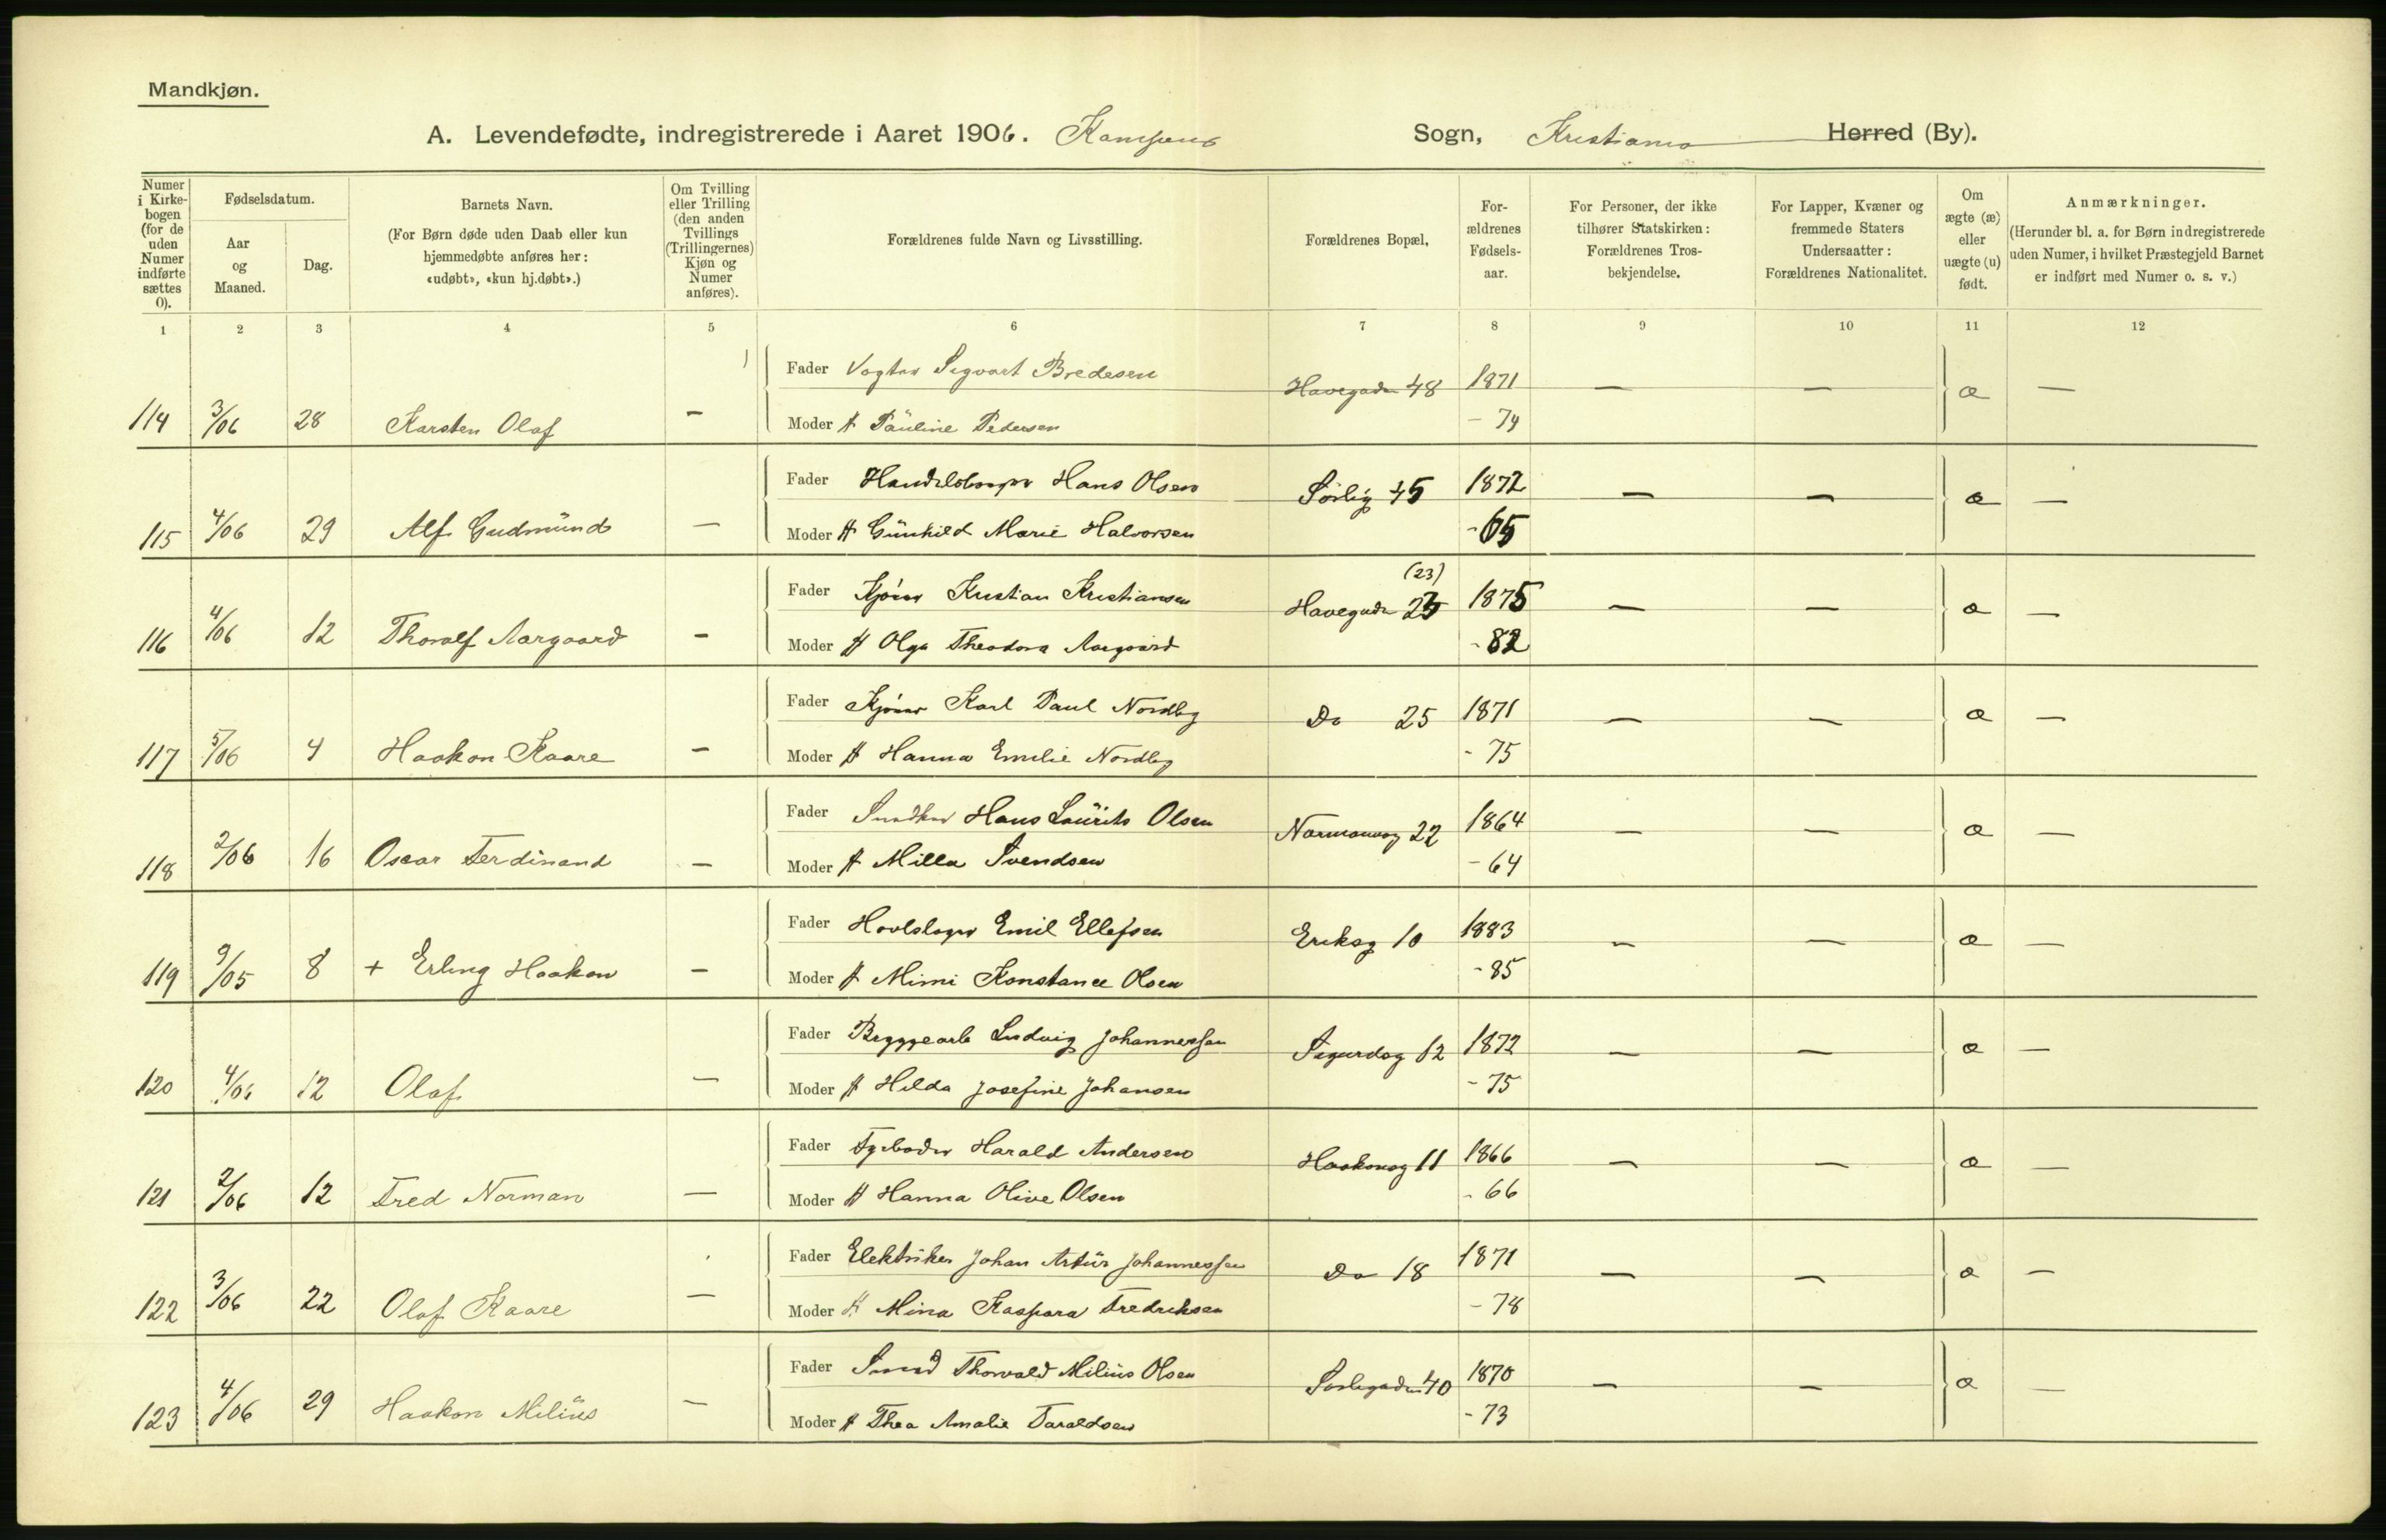 Mandkjøn.
A. Levendefødte, indregistrerede i Aaret 1906. Kampens Sogn, Kristiania Herred (By).
Numer i Kirkebogen (for de uden Numer indførte sættes 0).
Fødselsdatum.
Aar og Maaned.
Dag.
Barnets Navn.
(For Børn døde uden Daab eller kun hjemmedøbte anføres her: «udøbt», «kun hj.døbt».)
Om Tvilling eller Trilling (den anden Tvillings (Trillingernes) Kjøn og Numer anføres).
Forældrenes fulde Navn og Livsstilling.
Forældrenes Bopæl,
Forældrenes Fødselsaar.
For Personer, der ikke tilhører Statskirken: Forældrenes Trosbekjendelse.
For Lapper, Kvæner og fremmede Staters Undersaatter: Forældrenes Nationalitet.
Om ægte (æ) eller uægte (u) født.
Anmærkninger.
(Herunder bl. a. for Børn indregistrerede uden Numer, i hvilket Præstegjeld Barnet er indført med Numer o. s. v.)
1 2 3 4 5 6 7 8 9 10 11 12
Fader Vogter Sigvart Bredesen Havegaden 48 1871 — — æ —
114 3/06 28 Karsten Olaf — Moder H Pauline Pedersen - 74
Fader Hans Olsen Sörlig 45 1872 — — æ —
115 4/06 29 Alf Gudmund — Moder H Gunhild Marie Halvorsen - 65
(23)
Fader Kjører Kristian Kristiansen Havegaden 23 1875 — — æ —
116 4/06 12 Thoralf Aargaard — Moder H Olga Theodora Aargaard - 82
Fader Kjører Karl Paul Nordby Do 25 1871 — — æ —
117 5/06 4 Haakon Kaare — Moder H Hanna Emilie Nordby - 75
Fader Snedker Hans Laurits Olsen Normannsg 22 1864 — — æ —
118 2/06 16 Oscar Ferdinand — Moder H Milla Svendsen - 64
Fader Hovslager Emil Ellefsen Eriksg 10 1883 — — æ —
119 9/05 8 + Erling Haakon — Moder H Mimi Konstance Olsen - 85
Fader Bryggearb Ludvig Johannessen Sigurdsg 12 1872 — — æ —
120 4/06 12 Olaf — Moder H Hilda Josefine Johansen - 75
Fader Fyrbøder Harald Andersen Haakonsg 11 1866 — — æ —
121 2/06 12 Fred Norman — Moder H Hanna Olive Olsen - 66
Fader Elektriker Johan Artur Johannessen Do 18 1871 — — æ —
122 3/06 22 Olaf Kaare — Moder H Mina Kaspara Fredriksen - 78
Fader Smed Thorvald Milius Olsen Sørligaden 40 1870 — — æ —
123 4/06 29 Haakon Milius — Moder H Thea Amalie Taraldsen - 73